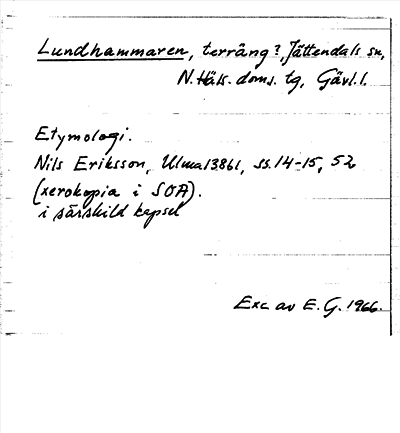 Lundhammaren, terräng?, Jättendals sn,
N. Häls. doms. tg, Gävl. l.
Etymologi.
Nils Eriksson, Ulma 13861, ss. 14-15, 52
(xerokopia i SOA).
i särskild kapsel
Exc. av E. G. 1966.